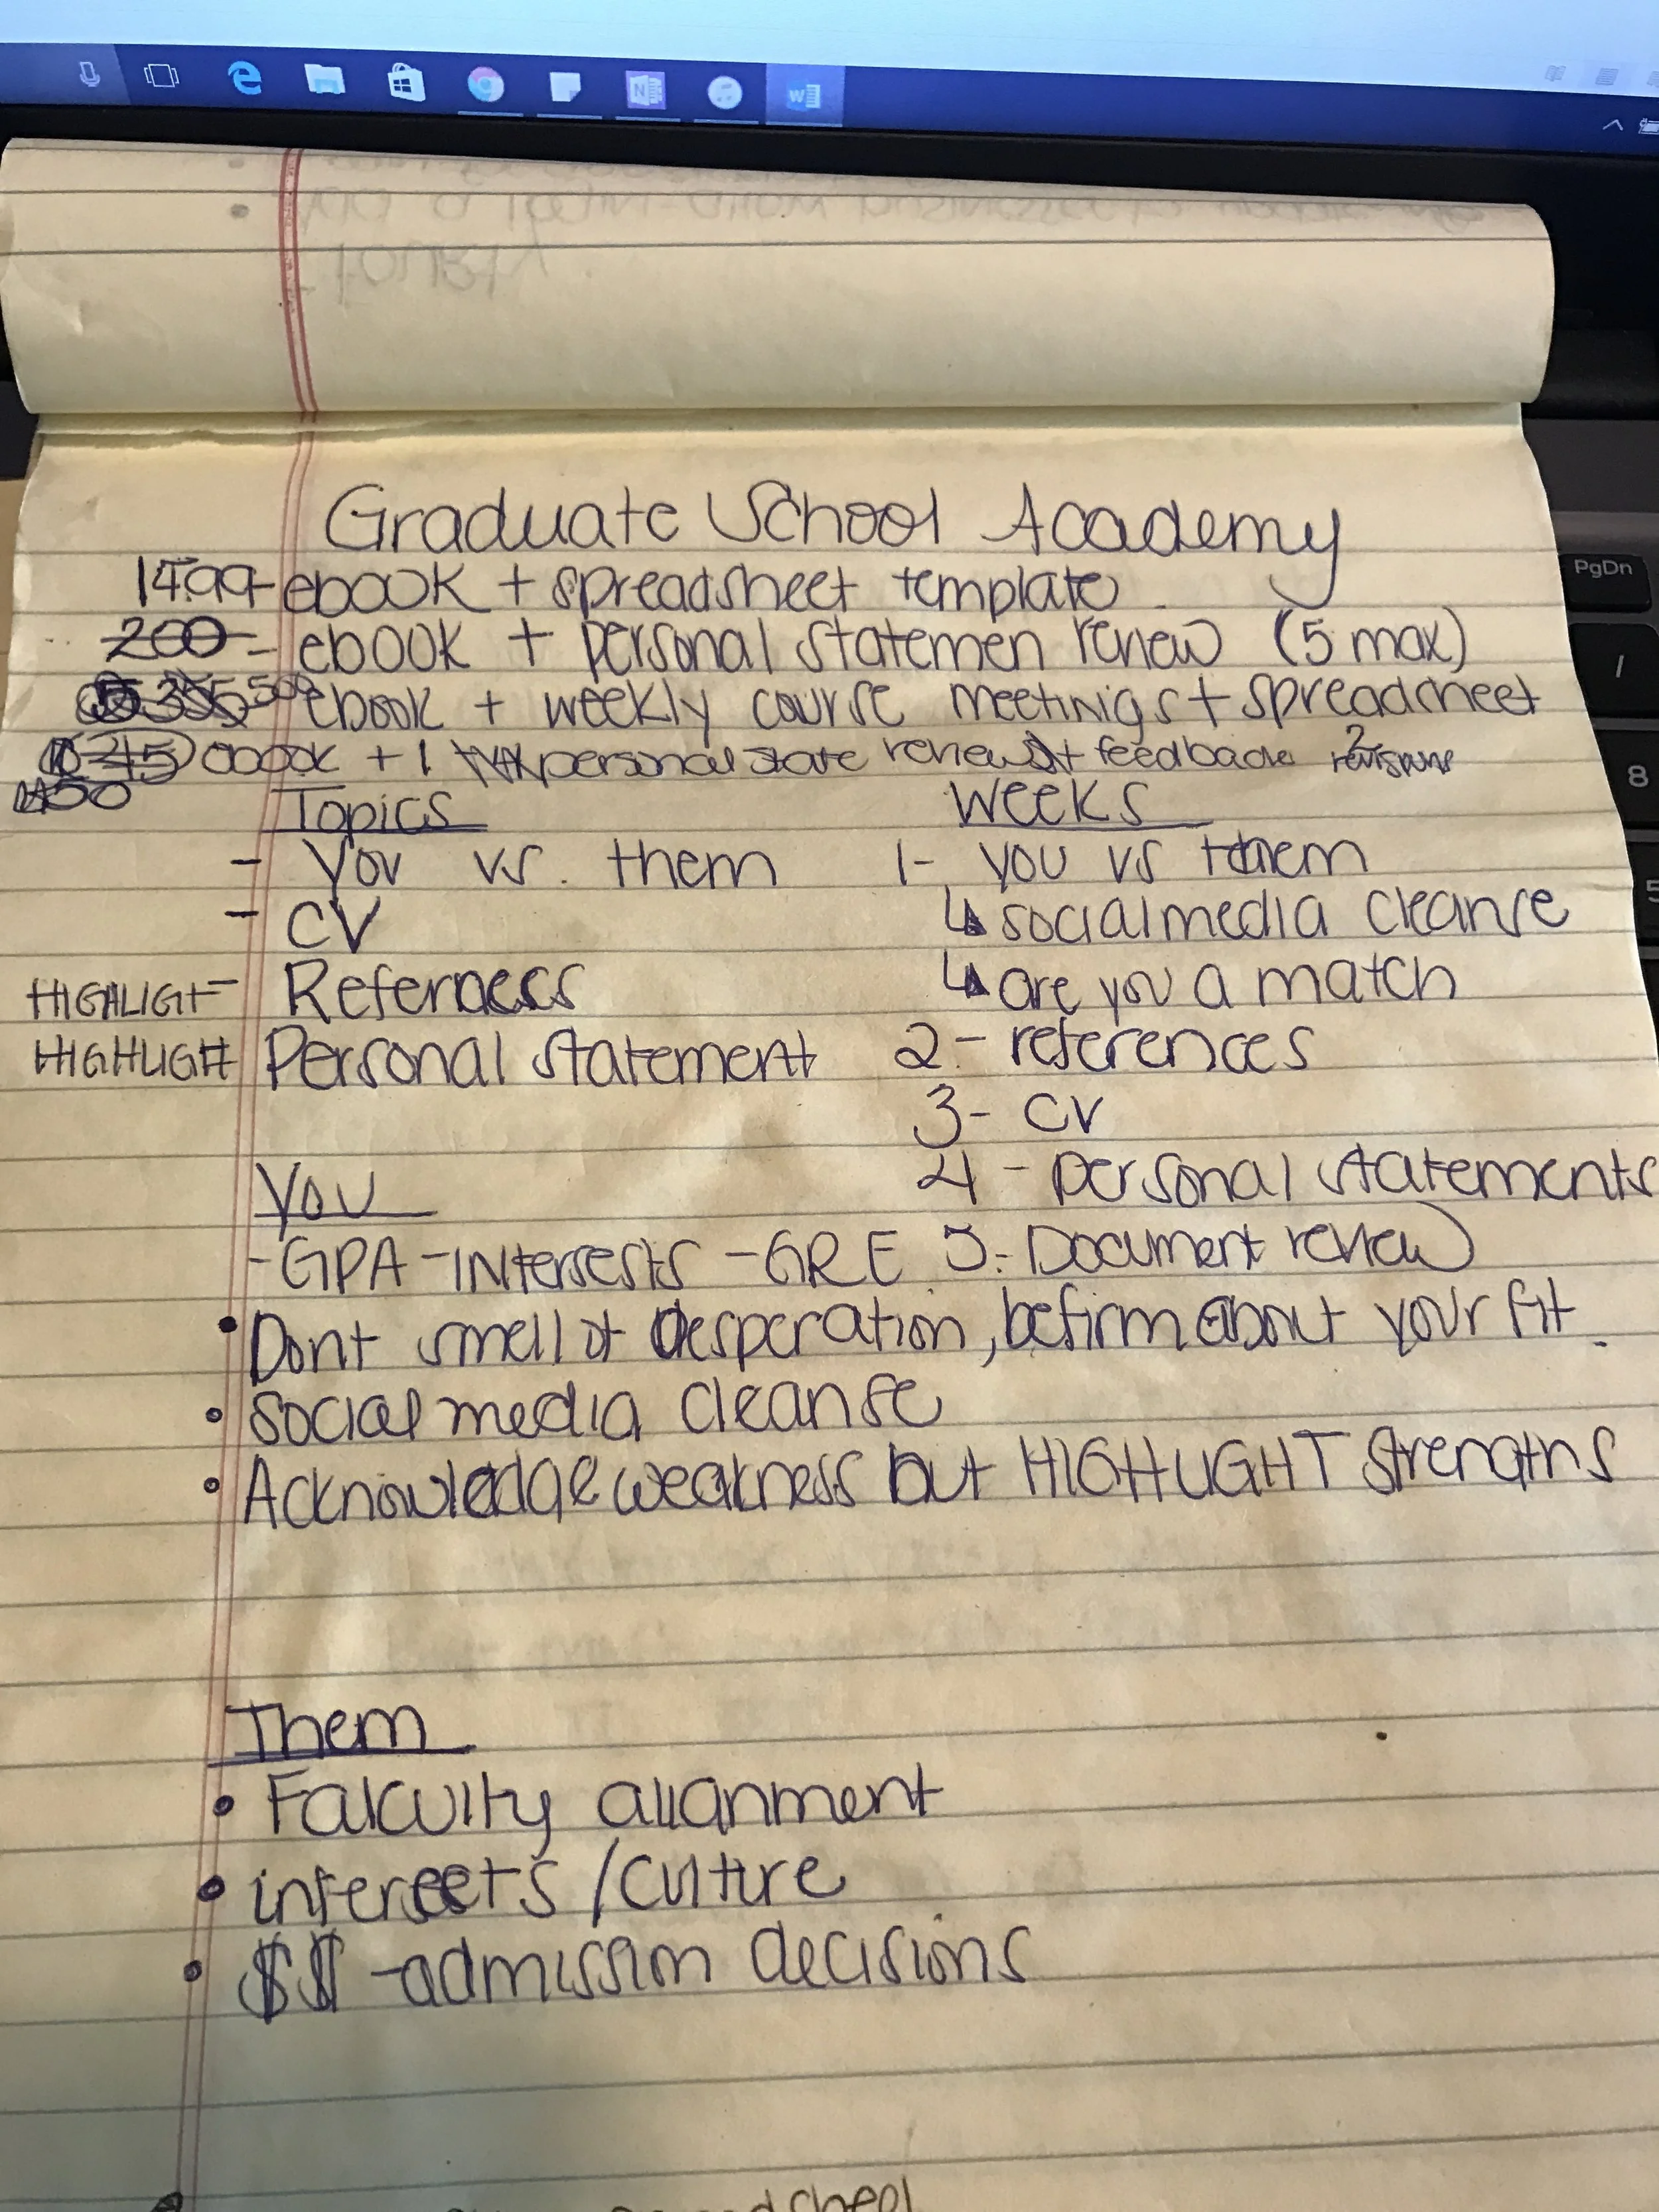 Graduate School Academy
14.99- ebook + spreadsheet template
200 - ebook + personal statemen review (5 max)
500 ebook + weekly course meetinigs + spreadsheet
45 ebook + 1 personal state review + feedback 2 revisions
Topics
- You vs. them
- CV
HIGHLIGHT - References
HIGHLIGHT Personal statement
Weeks
1- you vs them
↳ social media cleanse
↳ are you a match
2- references
3- CV
4 - personal statements
5- Document review
You
-GPA -INterests -GRE
• Dont smell of desperation, be firm about your fit.
• Social media cleanse
• Acknowledge weakness but HIGHLIGHT strengths
Them
• Falculty alianment
• interests / culture
• $$ -admission decisions
PgDn
/
8
5